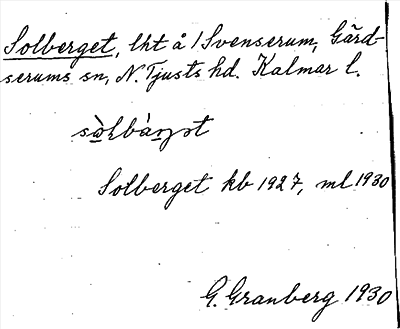 Solberget, lht å 1 Svenserum, Gärd-
serums sn, N. Tjusts hd. Kalmar l.
Solberget kb 1927, ml 1930
G. Granberg 1930